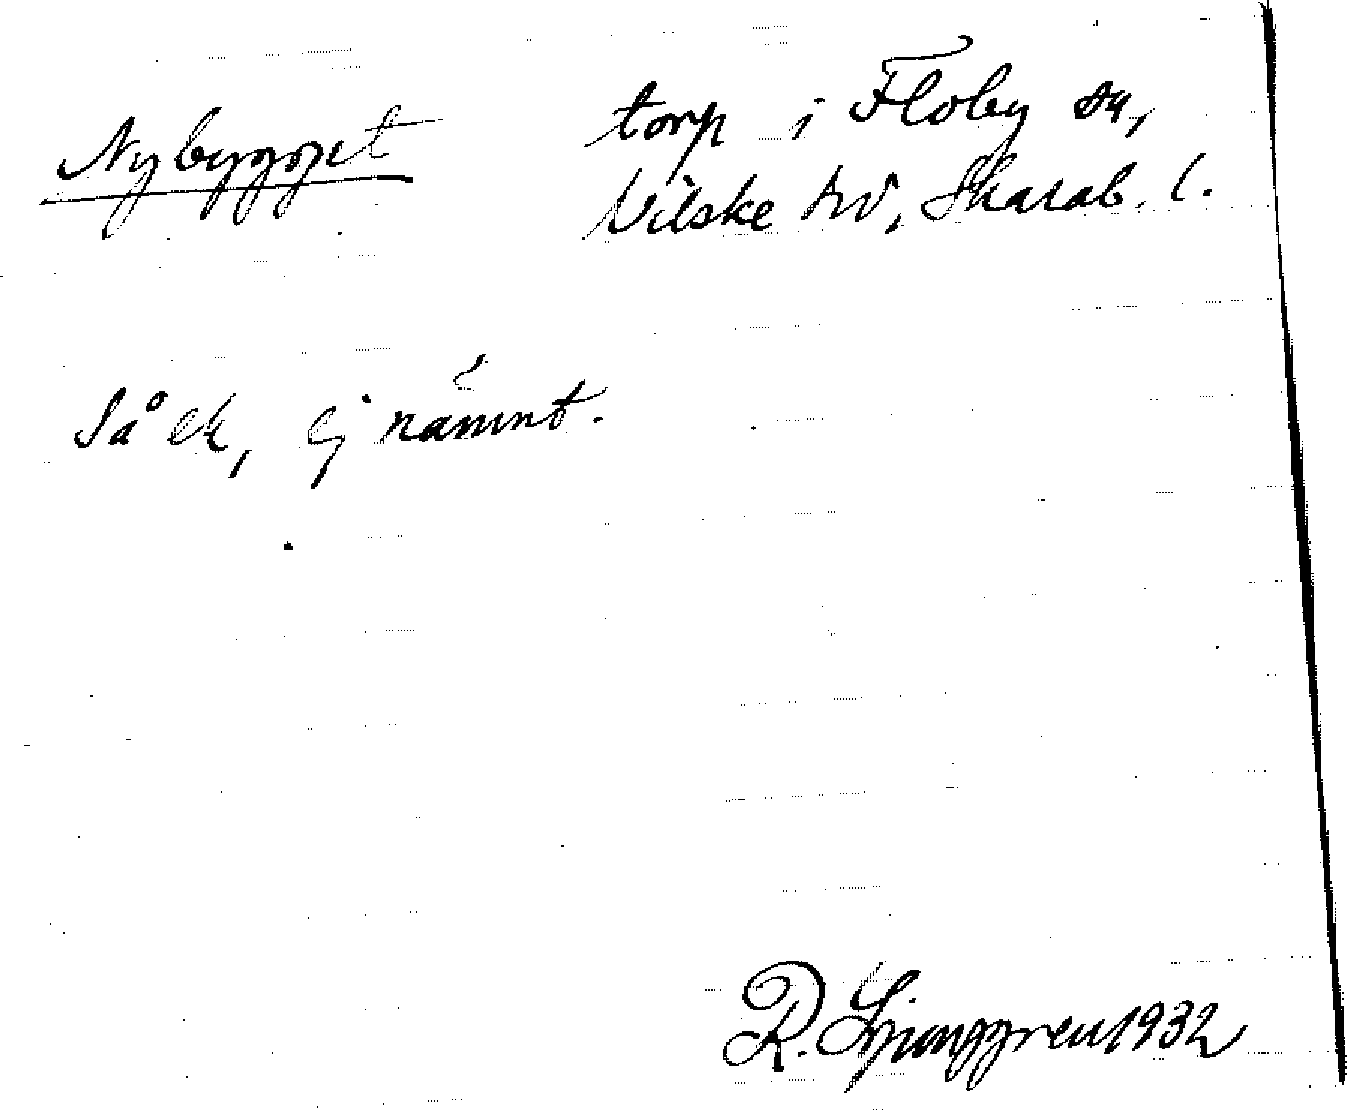 Nybygget torp i Floby sn,
Vilske hd, Skarab. l.
Så ek, ej nämnt.
R. Ljunggren 1932